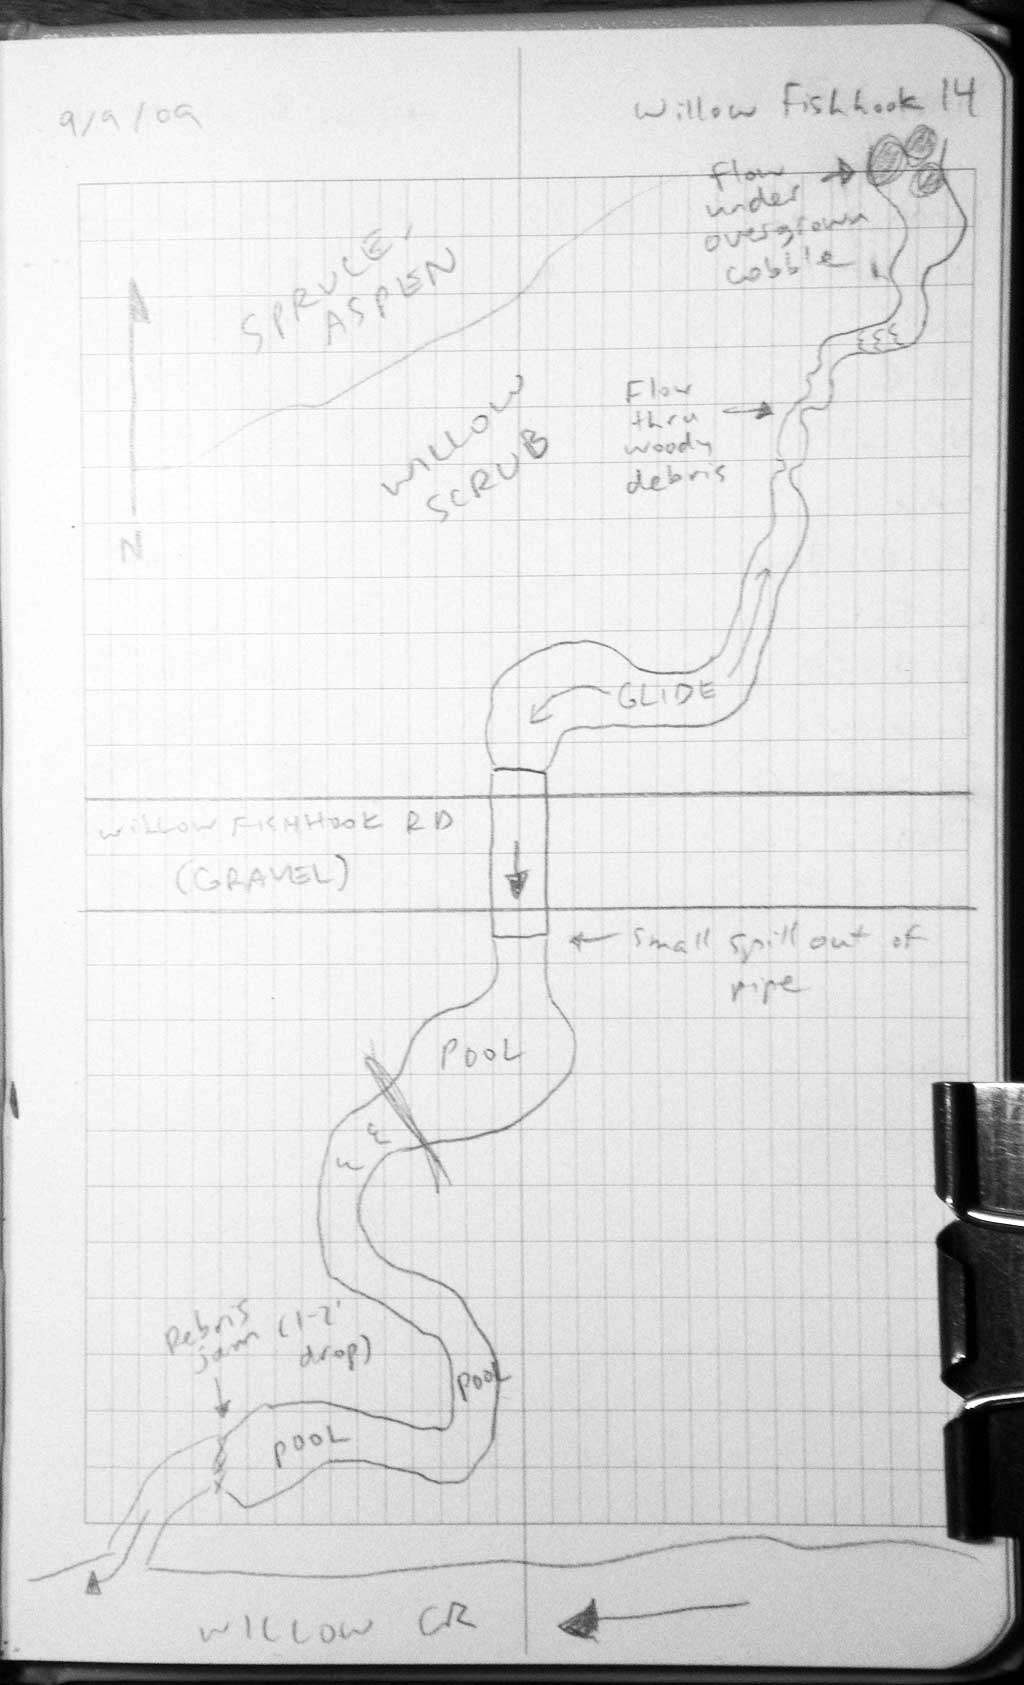 9/9/09
Willow Fishhook 14
Flow
under
overgrown
cobble
SPRUCE,
ASPEN
N
WILLOW
SCRUB
Flow
thru
woody
debris
GLIDE
WILLOW FISHHOOK RD
(GRAVEL)
small spill out of
pipe
POOL
Debris
jam (1-2'
drop)
POOL
POOL
WILLOW CR